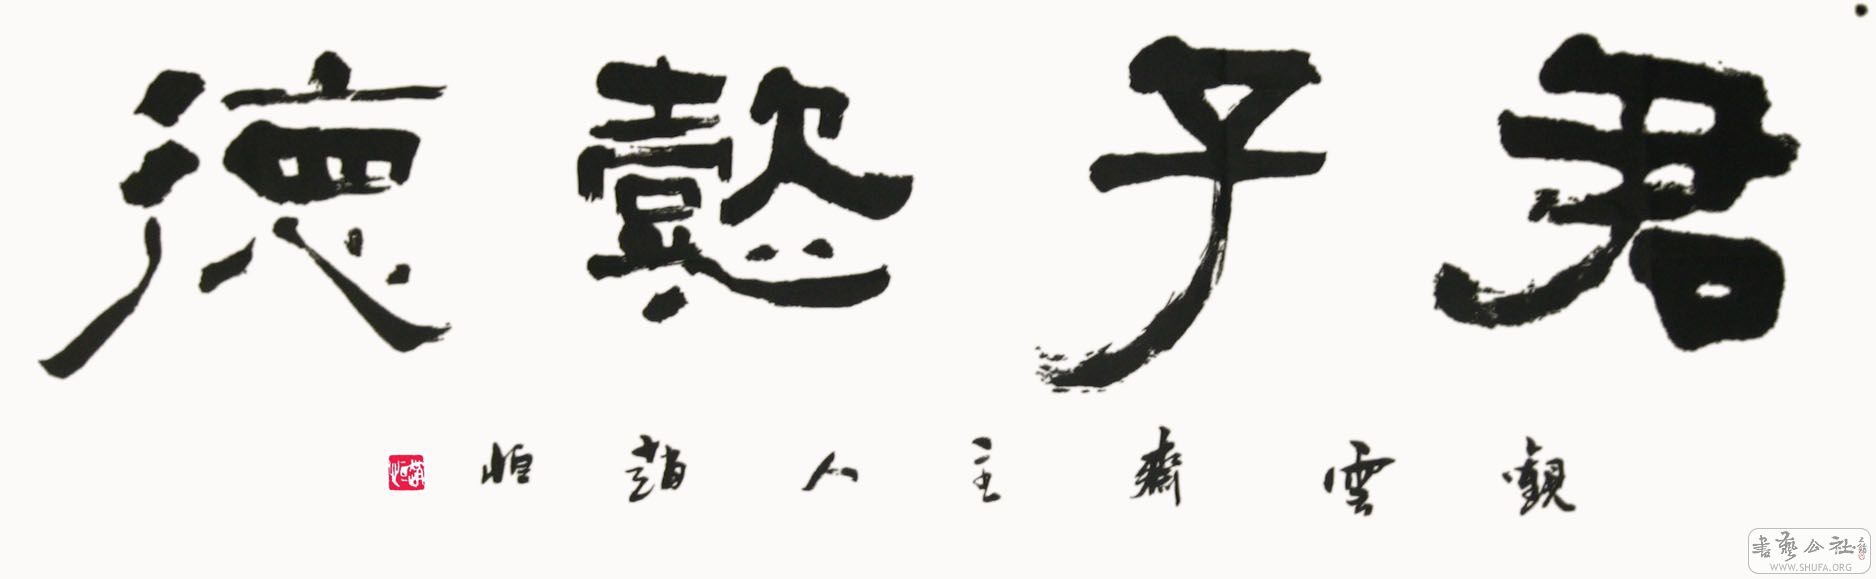 君子懿德
觀雲齋主人趙恒
書藝公社
WWW.SHUFA.ORG